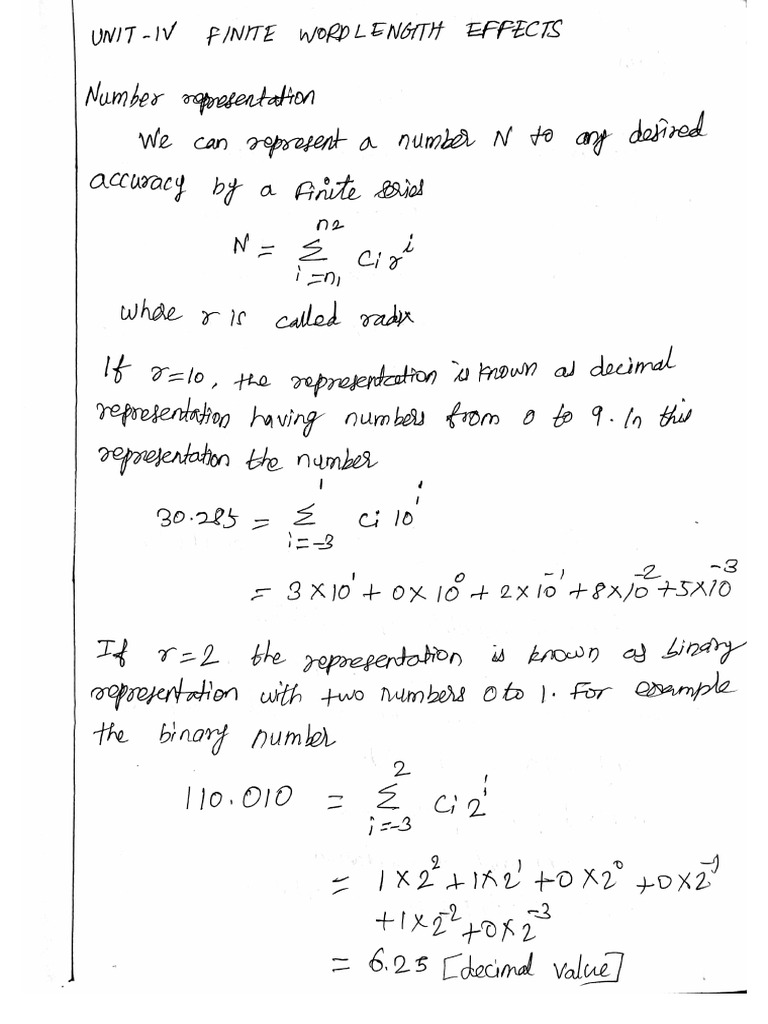 UNIT-IV FINITE WORDLENGTH EFFECTS
Number representation
We can represent a number N to any desired
accuracy by a finite series
N = n2 Σ i=n1 Ci r^i
where r is called radix
If r=10, the representation is known as decimal
representation having numbers from 0 to 9. In this
representation the number
30.285 = 1 Σ i=-3 Ci 10^i
= 3×10^1 + 0×10^0 + 2×10^-1 + 8×10^-2 + 5×10^-3
If r=2 the representation is known as binary
representation with two numbers 0 to 1. For example
the binary number
110.010 = 2 Σ i=-3 Ci 2^i
= 1×2^2 + 1×2^1 + 0×2^0 + 0×2^-1
+1×2^-2 + 0×2^-3
= 6.25 [decimal value]